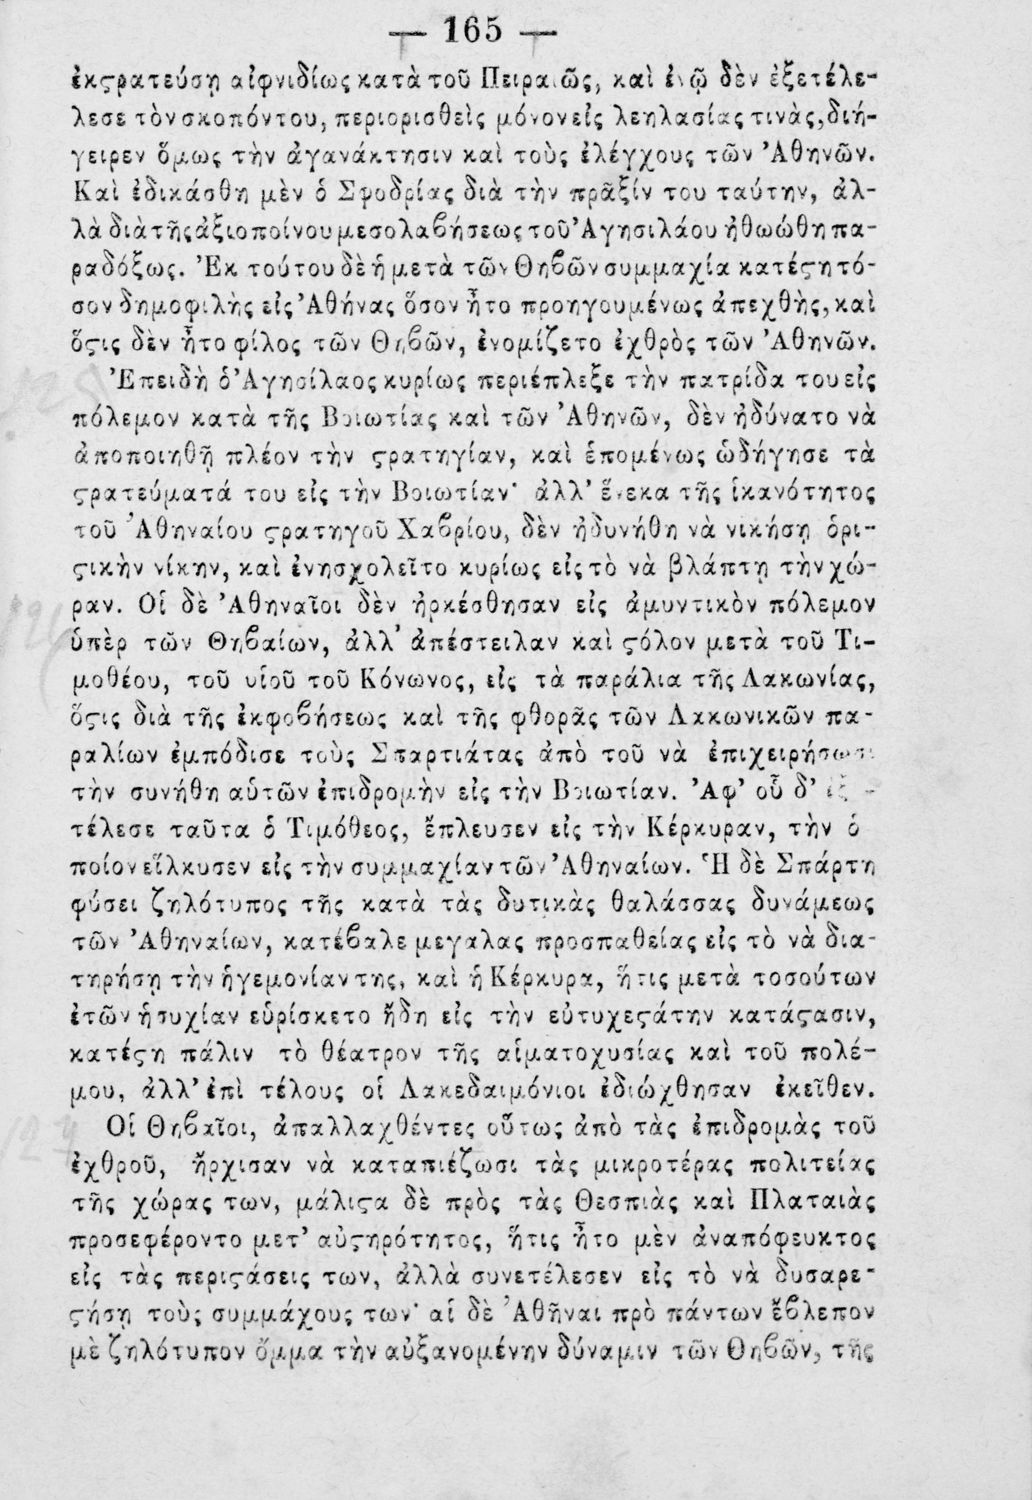 — 165 —
ἐκϛρατεύσῃ αἰφνιδίως κατὰ τοῦ Πειραιῶς, καὶ ἐνῷ δὲν ἐξετέλε-
λεσε τὸν σκοπόν του, περιορισθεὶς μόνον εἰς λεηλασίας τινὰς, διή-
γειρεν ὅμως τὴν ἀγανάκτησιν καὶ τοὺς ἐλέγχους τῶν Ἀθηνῶν.
Καὶ ἐδικάσθη μὲν ὁ Σφοδρίας διὰ τὴν πρᾶξίν του ταύτην, ἀλ-
λὰ διὰ τῆς ἀξιοποίνου μεσολαβήσεως τοῦ Ἀγησιλάου ἠθωώθη πα-
ραδόξως. Ἐκ τούτου δὲ ἡ μετὰ τῶν Θηβῶν συμμαχία κατέϛη τό-
σον δημοφιλὴς εἰς Ἀθήνας ὅσον ἦτο προηγουμένως ἀπεχθὴς, καὶ
ὅϛις δὲν ἦτο φίλος τῶν Θηβῶν, ἐνομίζετο ἐχθρὸς τῶν Ἀθηνῶν.
Ἐπειδὴ ὁ Ἀγησίλαος κυρίως περιέπλεξε τὴν πατρίδα του εἰς
πόλεμον κατὰ τῆς Βοιωτίας καὶ τῶν Ἀθηνῶν, δὲν ἠδύνατο νὰ
ἀποποιηθῇ πλέον τὴν ϛρατηγίαν, καὶ ἑπομένως ὡδήγησε τὰ
ϛρατεύματά του εἰς τὴν Βοιωτίαν· ἀλλ’ ἕνεκα τῆς ἱκανότητος
τοῦ Ἀθηναίου ϛρατηγοῦ Χαβρίου, δὲν ἠδυνήθη νὰ νικήσῃ ὁρι-
ϛικὴν νίκην, καὶ ἐνησχολεῖτο κυρίως εἰς τὸ νὰ βλάπτῃ τὴν χώ-
ραν. Οἱ δὲ Ἀθηναῖοι δὲν ἠρκέσθησαν εἰς ἀμυντικὸν πόλεμον
ὑπὲρ τῶν Θηβαίων, ἀλλ’ ἀπέστειλαν καὶ ϛόλον μετὰ τοῦ Τι-
μοθέου, τοῦ υἱοῦ τοῦ Κόνωνος, εἰς τὰ παράλια τῆς Λακωνίας,
ὅϛις διὰ τῆς ἐκφοβήσεως καὶ τῆς φθορᾶς τῶν Λακωνικῶν πα-
ραλίων ἐμπόδισε τοὺς Σπαρτιάτας ἀπὸ τοῦ νὰ ἐπιχειρήσωσι
τὴν συνήθη αὑτῶν ἐπιδρομὴν εἰς τὴν Βοιωτίαν. Ἀφ’ οὗ δ’ ἐξ-
τέλεσε ταῦτα ὁ Τιμόθεος, ἔπλευσεν εἰς τὴν Κέρκυραν, τὴν ὁ
ποίον εἵλκυσεν εἰς τὴν συμμαχίαν τῶν Ἀθηναίων. Ἡ δὲ Σπάρτη
φύσει ζηλότυπος τῆς κατὰ τὰς δυτικὰς θαλάσσας δυνάμεως
τῶν Ἀθηναίων, κατέβαλε μεγαλας προσπαθείας εἰς τὸ νὰ δια-
τηρήσῃ τὴν ἡγεμονίαν της, καὶ ἡ Κέρκυρα, ἥτις μετὰ τοσούτων
ἐτῶν ἡσυχίαν εὑρίσκετο ἤδη εἰς τὴν εὐτυχεϛάτην κατάϛασιν,
κατέϛη πάλιν τὸ θέατρον τῆς αἱματοχυσίας καὶ τοῦ πολέ-
μου, ἀλλ’ ἐπὶ τέλους οἱ Λακεδαιμόνιοι ἐδιώχθησαν ἐκεῖθεν.
Οἱ Θηβαῖοι, ἀπαλλαχθέντες οὕτως ἀπὸ τὰς ἐπιδρομὰς τοῦ
ἐχθροῦ, ἤρχισαν νὰ καταπιέζωσι τὰς μικροτέρας πολιτείας
τῆς χώρας των, μάλιϛα δὲ πρὸς τὰς Θεσπιὰς καὶ Πλαταιὰς
προσεφέροντο μετ’ αὐϛηρότητος, ἥτις ἦτο μὲν ἀναπόφευκτος
εἰς τὰς περιϛάσεις των, ἀλλὰ συνετέλεσεν εἰς τὸ νὰ δυσαρε-
ϛήσῃ τοὺς συμμάχους των· αἱ δὲ Ἀθῆναι πρὸ πάντων ἔβλεπον
μὲ ζηλότυπον ὄμμα τὴν αὐξανομένην δύναμιν τῶν Θηβῶν, τῆς
125
126
127